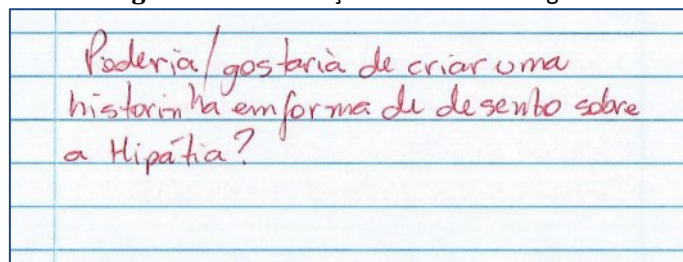 Poderia/gostaria de criar uma
historinha em forma de desenho sobre
a Hipátia?